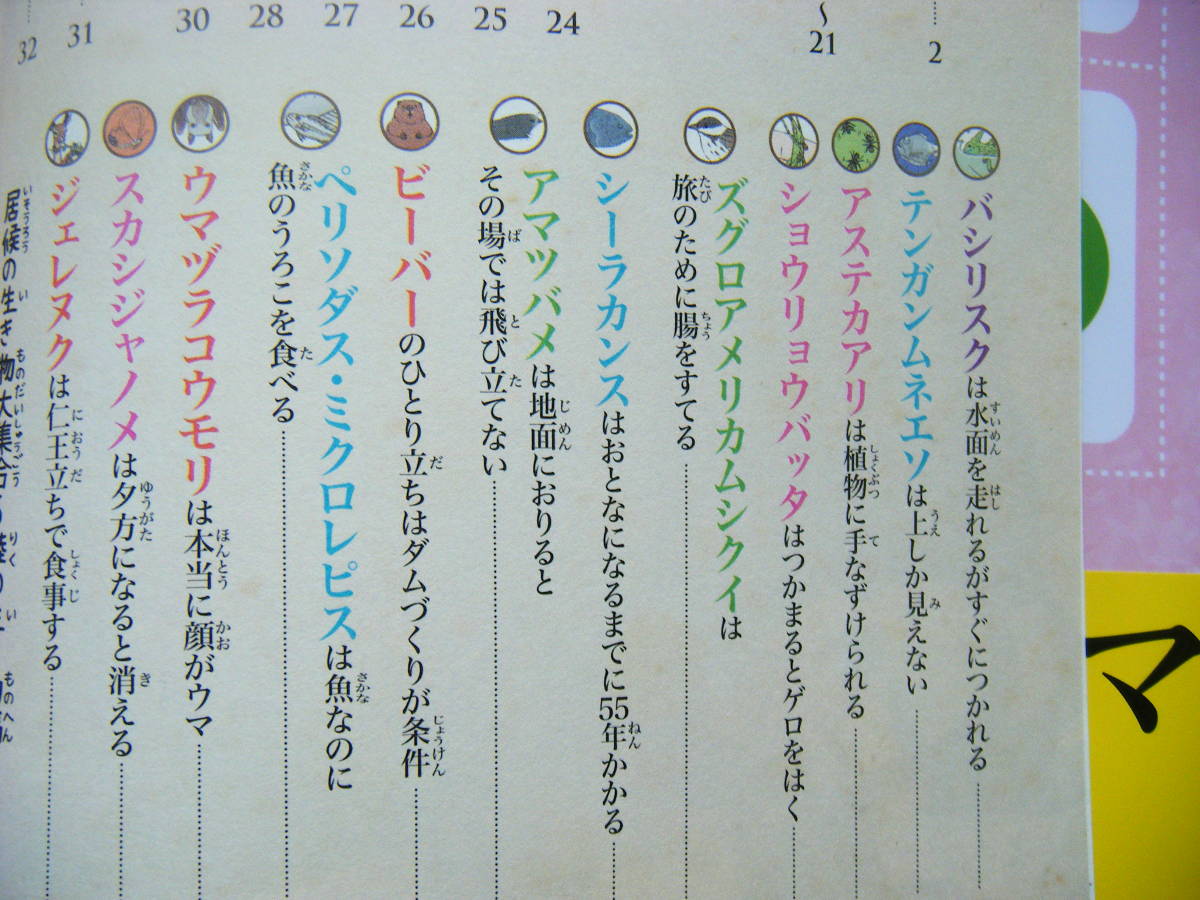 2
〜
21
24
25
26
27
28
30
31
32
バシリスクは水面を走れるがすぐにつかれる
テンガンムネエソは上しか見えない
アステカアリは植物に手なずけられる
ショウリョウバッタはつかまるとゲロをはく
ズグロアメリカムシクイは
旅のために腸をすてる
シーラカンスはおとなになるまでに55年かかる
アマツバメは地面におりると
その場では飛び立てない
ビーバーのひとり立ちはダムづくりが条件
ペリソダス・ミクロレピスは魚なのに
魚のうろこを食べる
ウマヅラコウモリは本当に顔がウマ
スカシジャノメは夕方になると消える
ジェレヌクは仁王立ちで食事する
居候の生き物大集合
マ